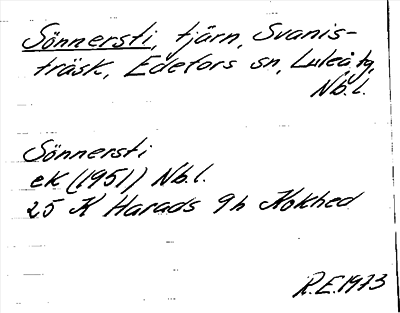 Sönnersti, tjärn, Svanis-
träsk, Edefors sn, Luleå tg,
Nb.l.
Sönnersti
ek (1951) Nb.l.
25 K Harads 9h Kokhed
R.E. 1973